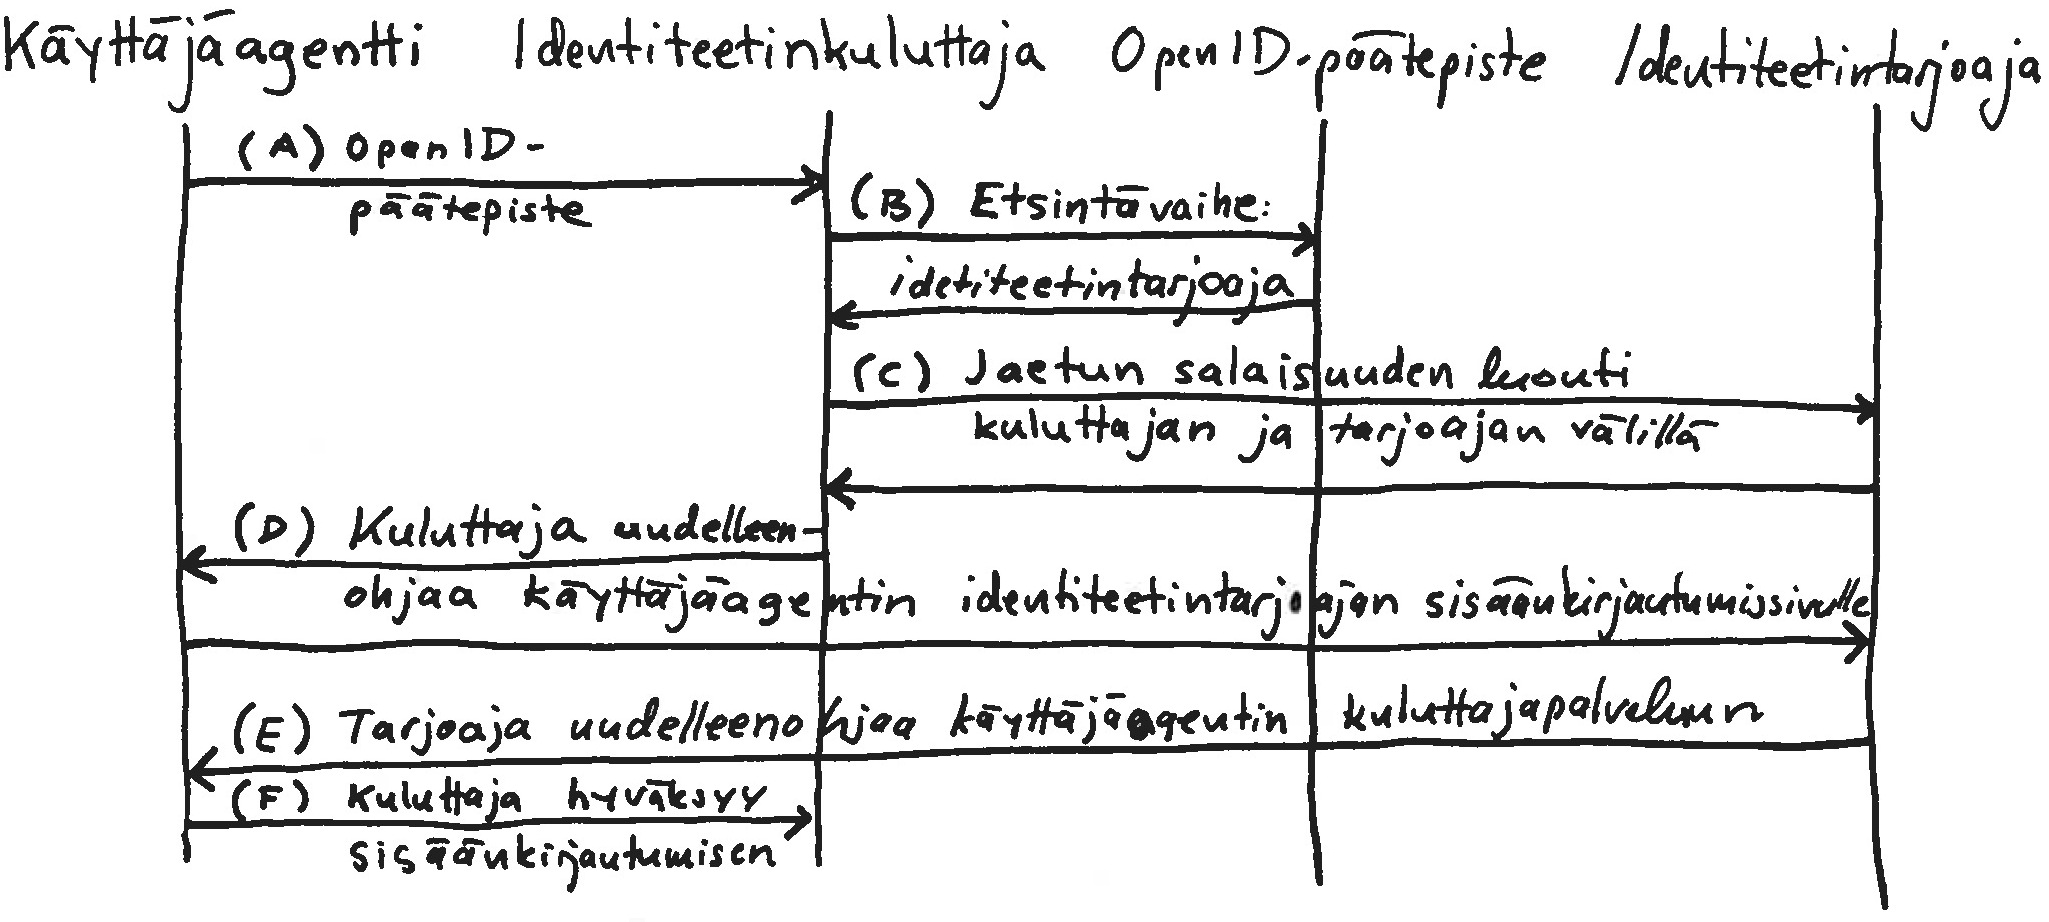 Käyttäjäagentti Identiteetinkuluttaja OpenID-päätepiste Identiteetintarjoaja
(A) OpenID-
päätepiste
(B) Etsintävaihe:
idetiteetintarjoaja
(C) Jaetun salaisuuden luonti
kuluttajan ja tarjoajan välillä
(D) Kuluttaja uudelleen-
ohjaa käyttäjäagentin identiteetintarjoajan sisäänkirjautumissivulle
(E) Tarjoaja uudelleenohjaa käyttäjäagentin kuluttajapalveluun
(F) Kuluttaja hyväksyy
sisäänkirjautumisen